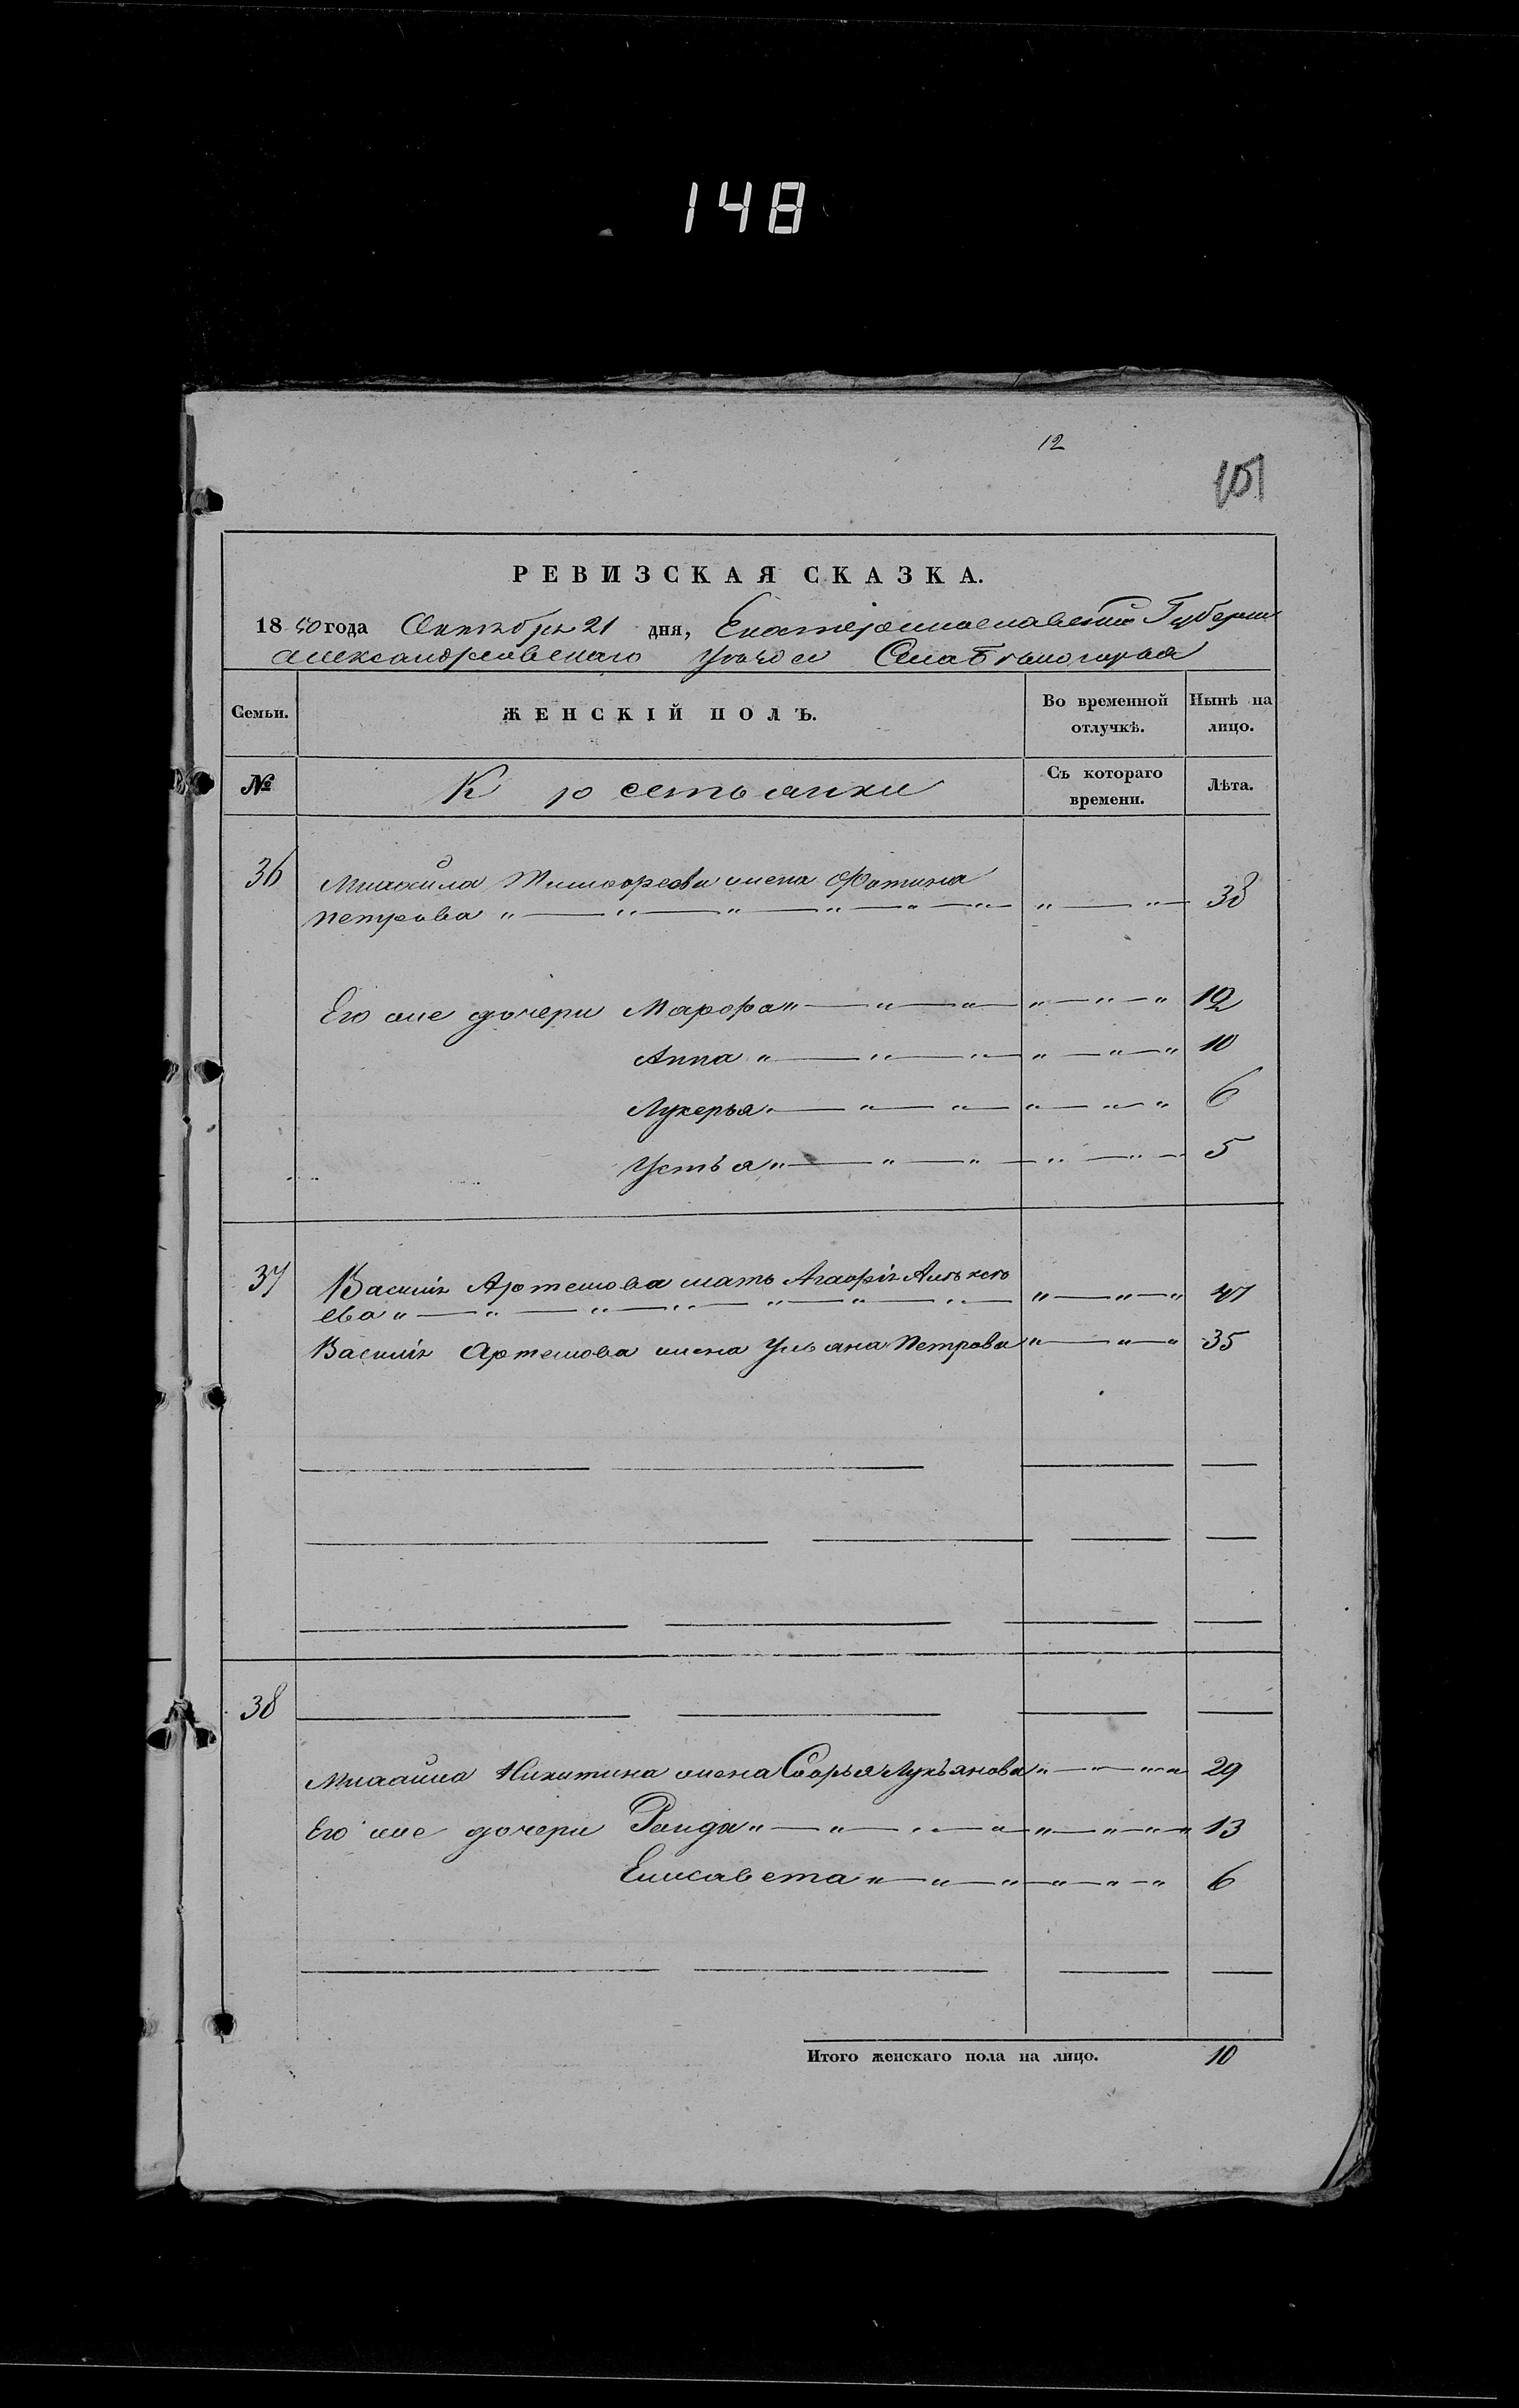 148
12
151
РЕВИЗСКАЯ СКАЗКА.
1850 года Октября 21 дня, Екатеринославской Губернии
Александровскаго уѣзда Села Бѣлогорья
Семьи.
ЖЕНСКІЙ ПОЛЪ.
Во временной отлучкѣ.
Нынѣ на лицо.
№
Крестьянки
Съ котораго времени.
Лѣта.
36 Михайла Тимофеева жена Фотина
Петрова „ — „ — „ — „ — „ — „ — 38
Его же дочери Марфа „ — „ — „ — „ — 12
Анна „ — „ — „ — „ — „ 10
Лукерья „ — „ — „ — „ — „ 6
Устья „ — „ — „ — „ — „ — 5
37 Василія Артемова мать Агафія Алѣксѣ
ева „ — „ — „ — „ — „ — „ — „ 47
Василія Артемова жена Ульяна Петрова „ — „ — „ 35
38
Михайла Никитина жена Софья Лукьянова „ — „ — „ 29
Его же дочери Раида „ — „ — „ — „ — „ 13
Елисавета „ — „ — „ — „ — „ 6
Итого женскаго пола на лицо. 10